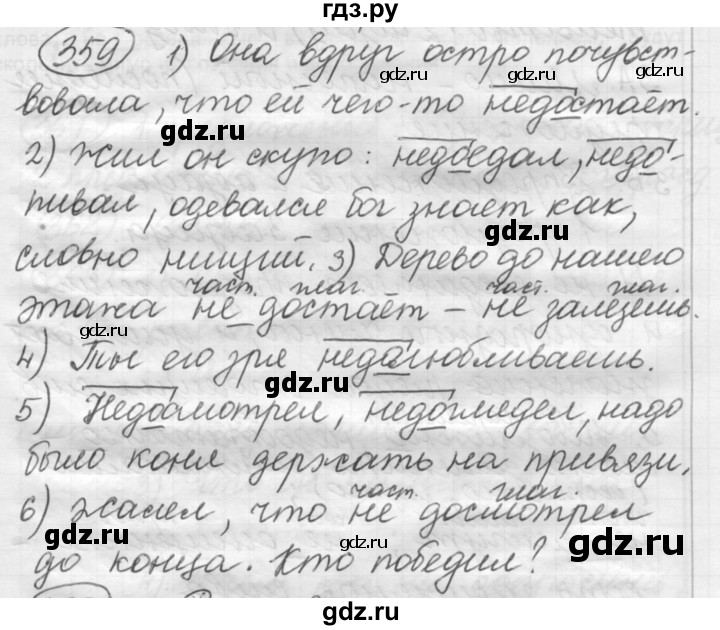 гдз.ру
359 1) Она вдруг остро почувст-
gdz.ru gdz.ru
вовала, что ей чего-то недостаёт.
gdz.ru gdz.ru
2) Жил он скупо: недоедал, недо-
пивал, одевался бог знает как,
словно нищий. 3) Дерево до нашего
част. глаг. част. глаг.
этажа не достаёт – не залезешь.
gdz.ru gdz.ru
4) Ты его зря недолюбливаешь.
gdz.ru
5) Недосмотрел, недоглядел, надо
было коня держать на привязи.
част. глаг.
6) Жалел, что не досмотрел
gdz.ru gdz.ru gdz.ru
до конца. Кто победил?
gdz.ru